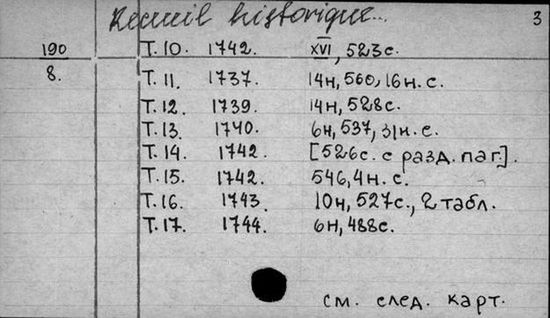 Recueil historique... 3
190 Т. 10. 1742. XVI, 523 с.
8. Т. 11. 1737. 14н, 560, 16 н. с.
Т. 12. 1739. 14н, 528 с.
Т. 13. 1740. 6н, 537, 31 н. с.
Т. 14. 1742. [526 с. с разд. паг.].
Т. 15. 1742. 546, 4 н. с.
Т. 16. 1743. 10н, 527 с., 2 табл.
Т. 17. 1744. 6н, 488 с.
см. след. карт.